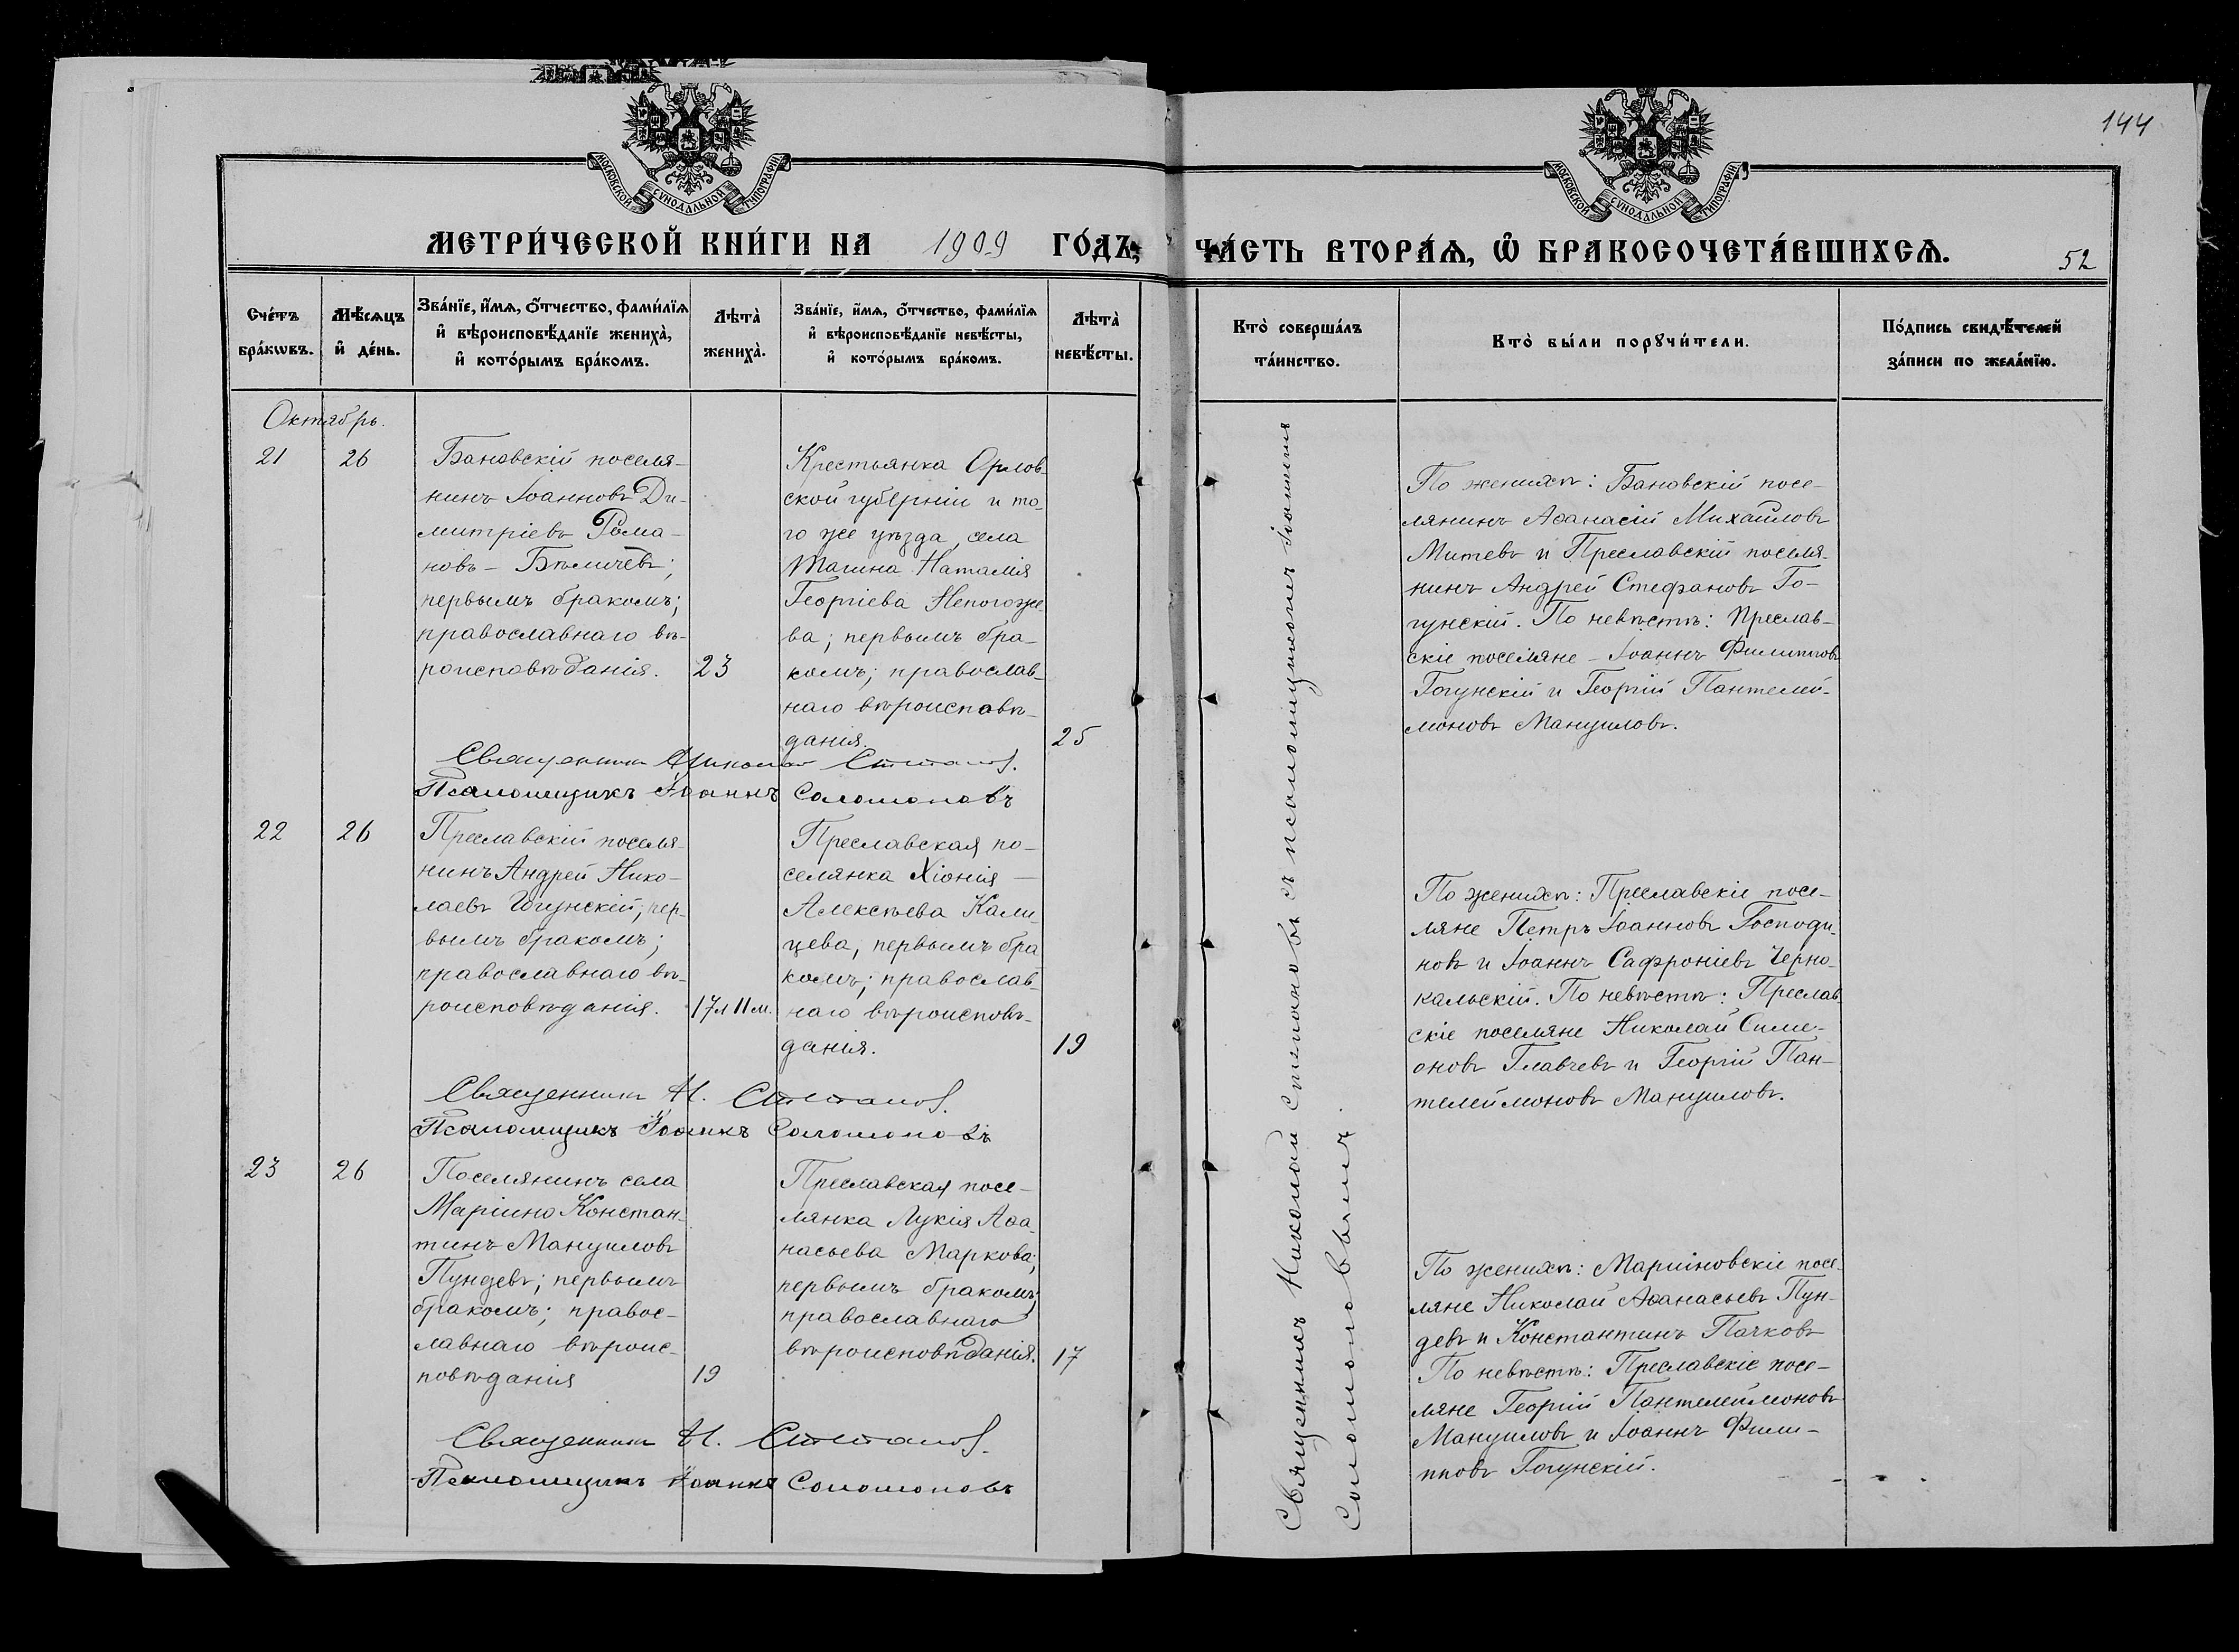 144
МОСКОВСКОЙ СѴНОДАЛЬНОЙ ТИПОГРАФІИ
МОСКОВСКОЙ СѴНОДАЛЬНОЙ ТИПОГРАФІИ
МЕТРИ́ЧЕСКОЙ КНИ́ГИ НА 1909 ГО́ДЪ,
ЧА́СТЬ ВТОРА́Ѧ, Ѡ БРАКОСОЧЕТА́ВШИХСѦ.
52
Сче́тъ
бра́кѡвъ.
Мѣ́сѧцъ
и҆ де́нь.
Зва́нїе, и҆́мѧ, ѻ҆́тчество, фами́лїѧ
и҆ вѣроисповѣ́данїе жениха̀,
и҆ кото́рымъ бра́комъ.
Лѣта̀
жениха̀.
Зва́нїе, и҆́мѧ, ѻ҆́тчество, фами́лїѧ
и҆ вѣроисповѣ́данїе невѣ́сты,
и҆ кото́рымъ бра́комъ.
Лѣта̀
невѣ́сты.
Кто̀ соверша́лъ
та́инство.
Кто̀ бы́ли порꙋчи́тели.
По́дпись свидѣ́телей
за́писи по жела́нїю.
Октябрь.
21
26
Бановскій поселя-
нинъ Іоанновъ Ди-
митріевъ Рома-
новъ - Бѣличевъ;
первымъ бракомъ;
православнаго вѣ-
роисповѣданія.
23
Крестьянка Орлов
ской губерніи и то-
го же уѣзда, села
Тагина Наталія
Георгіева Непогоже
ва; первымъ бра-
комъ; православ-
наго вѣроисповѣ-
данія.
25
Священникъ Николай Степановъ.
Псаломщикъ Іоаннъ Соломоновъ
22
26
Преславскій поселя-
нинъ Андрей Нико-
лаевъ Гогунскій; пер-
вымъ бракомъ;
православнаго вѣ-
роисповѣданія.
17л 11м.
Преславская по-
селянка Хіонія -
Алексѣева Кали-
цева, первымъ бра
комъ; православ-
наго вѣроисповѣ-
данія.
19
Священникъ Н. Степановъ.
Псаломщикъ Іоаннъ Соломоновъ
23
26
Поселянинъ села
Маріино Констан-
тинъ Мануиловъ
Пундевъ; первымъ
бракомъ; правос-
лавнаго вѣроис-
повѣданія
19
Преславская посе-
лянка Лукія Аѳа-
насьева Маркова;
первымъ бракомъ;
православнаго
вѣроисповѣданія.
17
Священникъ Н. Степановъ.
Псаломщикъ Іоаннъ Соломоновъ
Священникъ Николай Степановъ съ псаломщикомъ Іоанномъ
Соломоновымъ.
По женихѣ: Бановскій посе-
лянинъ Аѳанасій Михайловъ
Митевъ и Преславскій поселя-
нинъ Андрей Стефановъ Го-
гунскій. По невѣстѣ: Преслав-
скіе поселяне - Іоаннъ Филипповъ
Гогунскій и Георгій Пантелей-
моновъ Мануиловъ.
По женихѣ: Преславскіе посе-
ляне Петръ Іоанновъ Господи-
новъ и Іоаннъ Сафроніевъ Черно-
кальскій. По невѣстѣ: Преслав
скіе поселяне Николай Симе-
оновъ Главчевъ и Георгій Пан-
телеймоновъ Мануиловъ.
По женихѣ: Маріиновскіе посе-
ляне Николай Аѳанасьевъ Пун-
девъ и Константинъ Пачковъ
По невѣстѣ: Преславскіе посе-
ляне Георгій Пантелеймоновъ
Мануиловъ и Іоаннъ Фили-
пповъ Гогунскій.